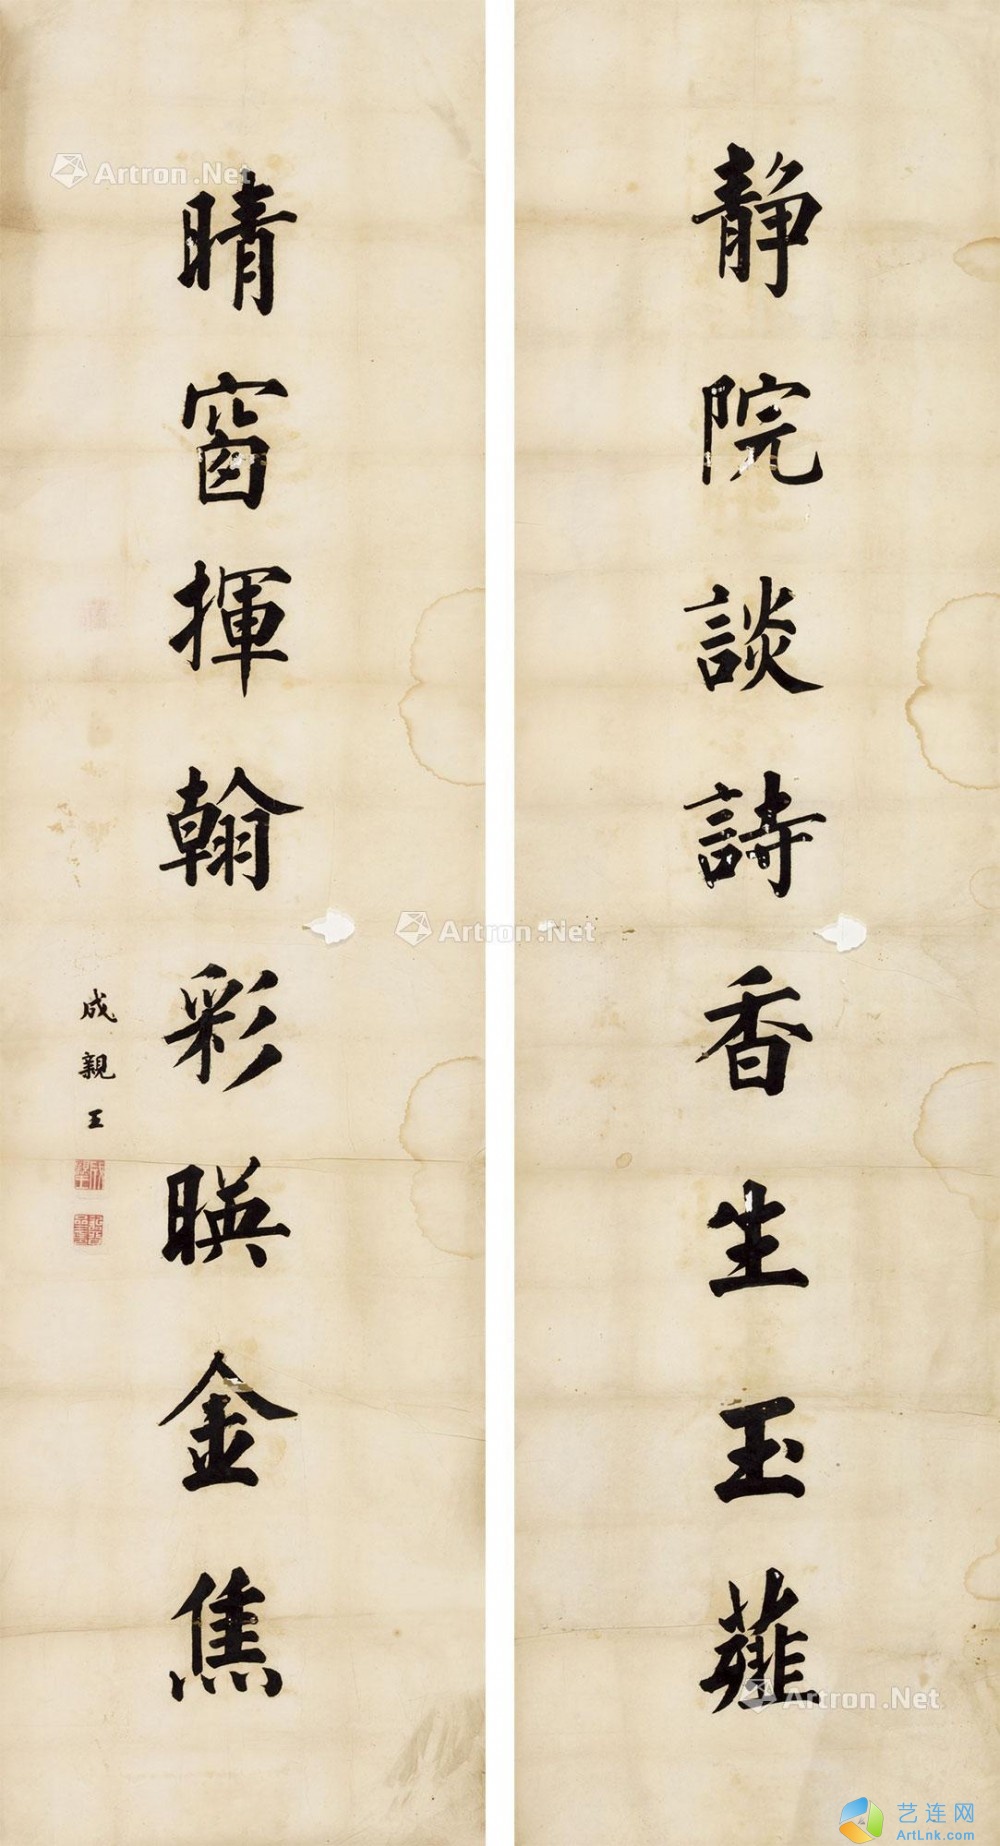 静院談詩香生玉薤
晴窗揮翰彩暎金焦
成親王
Artron.Net
Artron.Net
Artron.Net
艺连网
ArtLnk.com